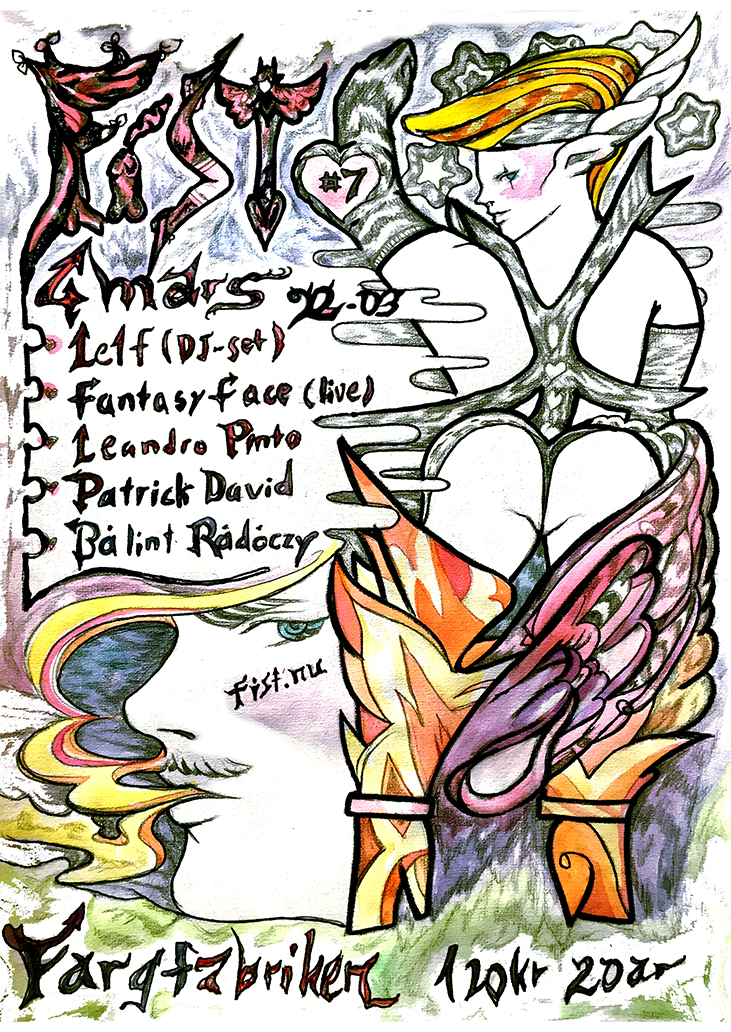 FIST
#7
4 mars 22-03
Le1f (DJ-set)
Fantasy Face (live)
Leandro Pinto
Patrick David
Bálint Rádóczy
fist.nu
Färgfabriken 120kr 20år